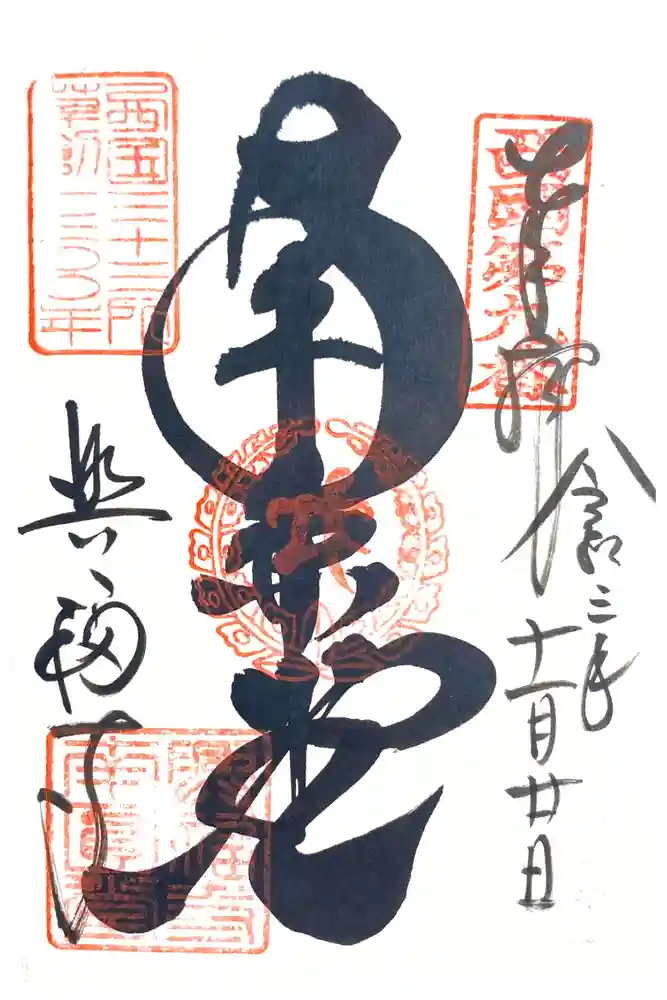 奉拝
西国第九番
令和三年
十一月廿日
西国三十三所
草創一三〇〇年
興福寺
興福寺
南圓堂